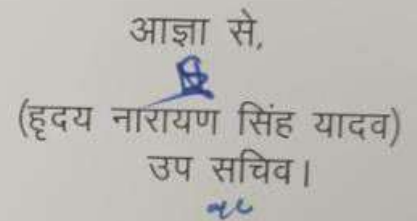 आज्ञा से,
(हृदय नारायण सिंह यादव)
उप सचिव।